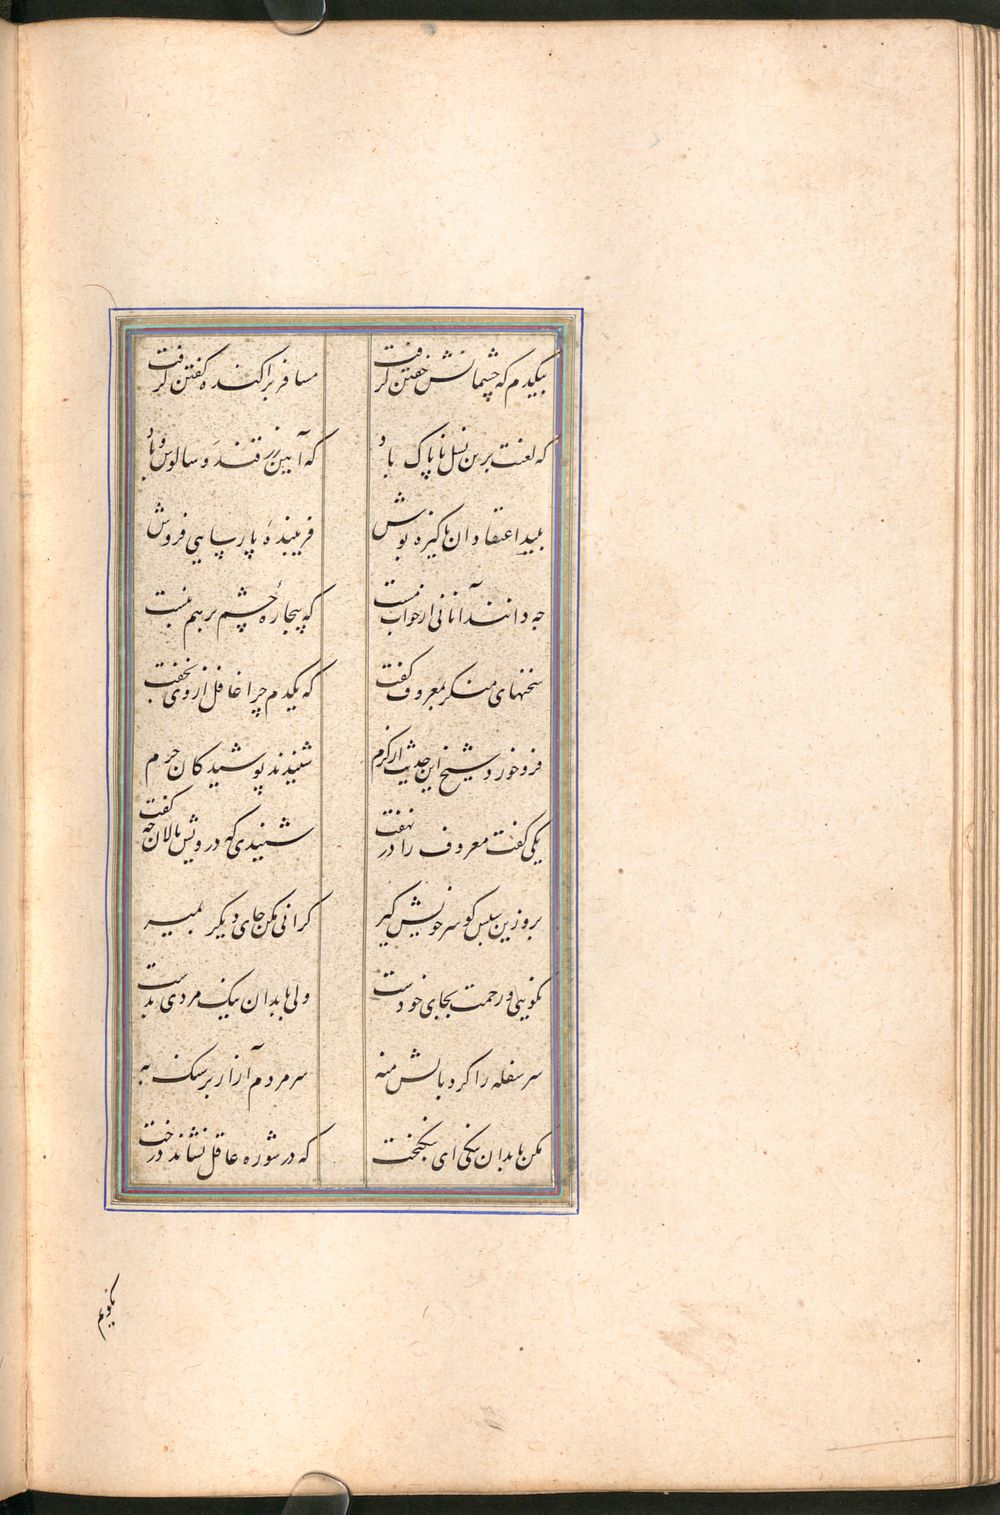 بیکدم که چشمانش خفتن گرفت مسافر پراکنده گفتن گرفت
که لعنت برین نسل ناپاک باد که آیین زرقند و سالوس و باد
پلید اعتقادان پاکیزه پوش فریبندهٔ پارسایی فروش
چه دانند آنانی از خواب مست که بیچارهٔ چشم بر هم نبست
سخنهای منکر بمعروف گفت که یکدم چرا غافل از وی بخفت
فرو خورد شیخ این حدیث از کرم شنیدند پوشیدکان حرم
یکی گفت معروف را در نهفت شنیدی که درویش نالان چه گفت
برو زین سپس گو سر خویش گیر گرانی مکن جای دیگر بمیر
نکویی و رحمت بجای خودست ولی با بدان نیک مردی بدست
سر سفله را گرد بالش منه سر مردم آزار بر سنگ به
مکن با بدان نیکی ای نیکبخت که در شوره عاقل نشاند درخت
نگویم